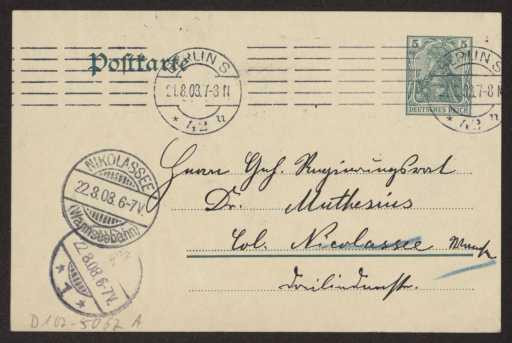 Postkarte
BERLIN S
21.8.08.7-8 N
* 42 u
5 5
DEUTSCHES REICH
NIKOLASSEE
22.8.08.6-7V.
(Wannseebahn)
22.8.08 6-7V.
* 1 *
Herrn Geh. Regierungsrat
Dr. Muthesius
Col. Nicolassee
Dreilindenstr.
D 102-5067 A